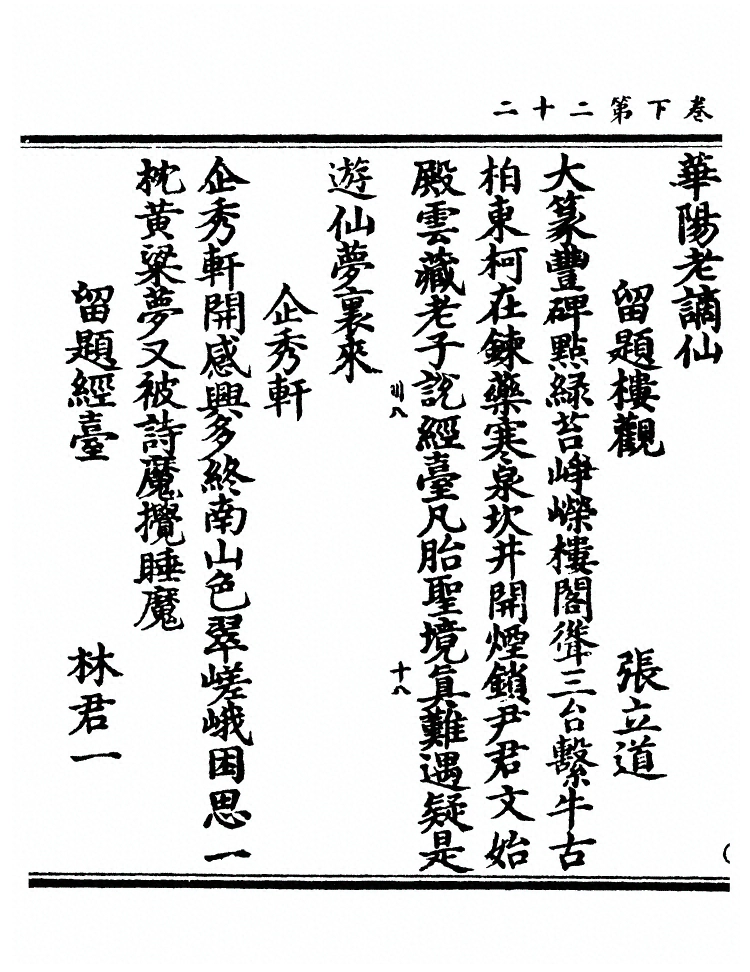 卷下第二十二
華陽老謫仙
留題樓觀　張立道
大篆豐碑點綠苔崢嶸樓閣聳三台繫牛古
柏東柯在鍊藥寒泉坎井開煙鎖尹君文始
殿雲藏老子說經臺凡胎聖境真難遇疑是
訓八
十八
遊仙夢裏來
企秀軒
企秀軒開感興多終南山色翠嵯峨困思一
枕黃粱夢又被詩魔攪睡魔
留題經臺　林君一